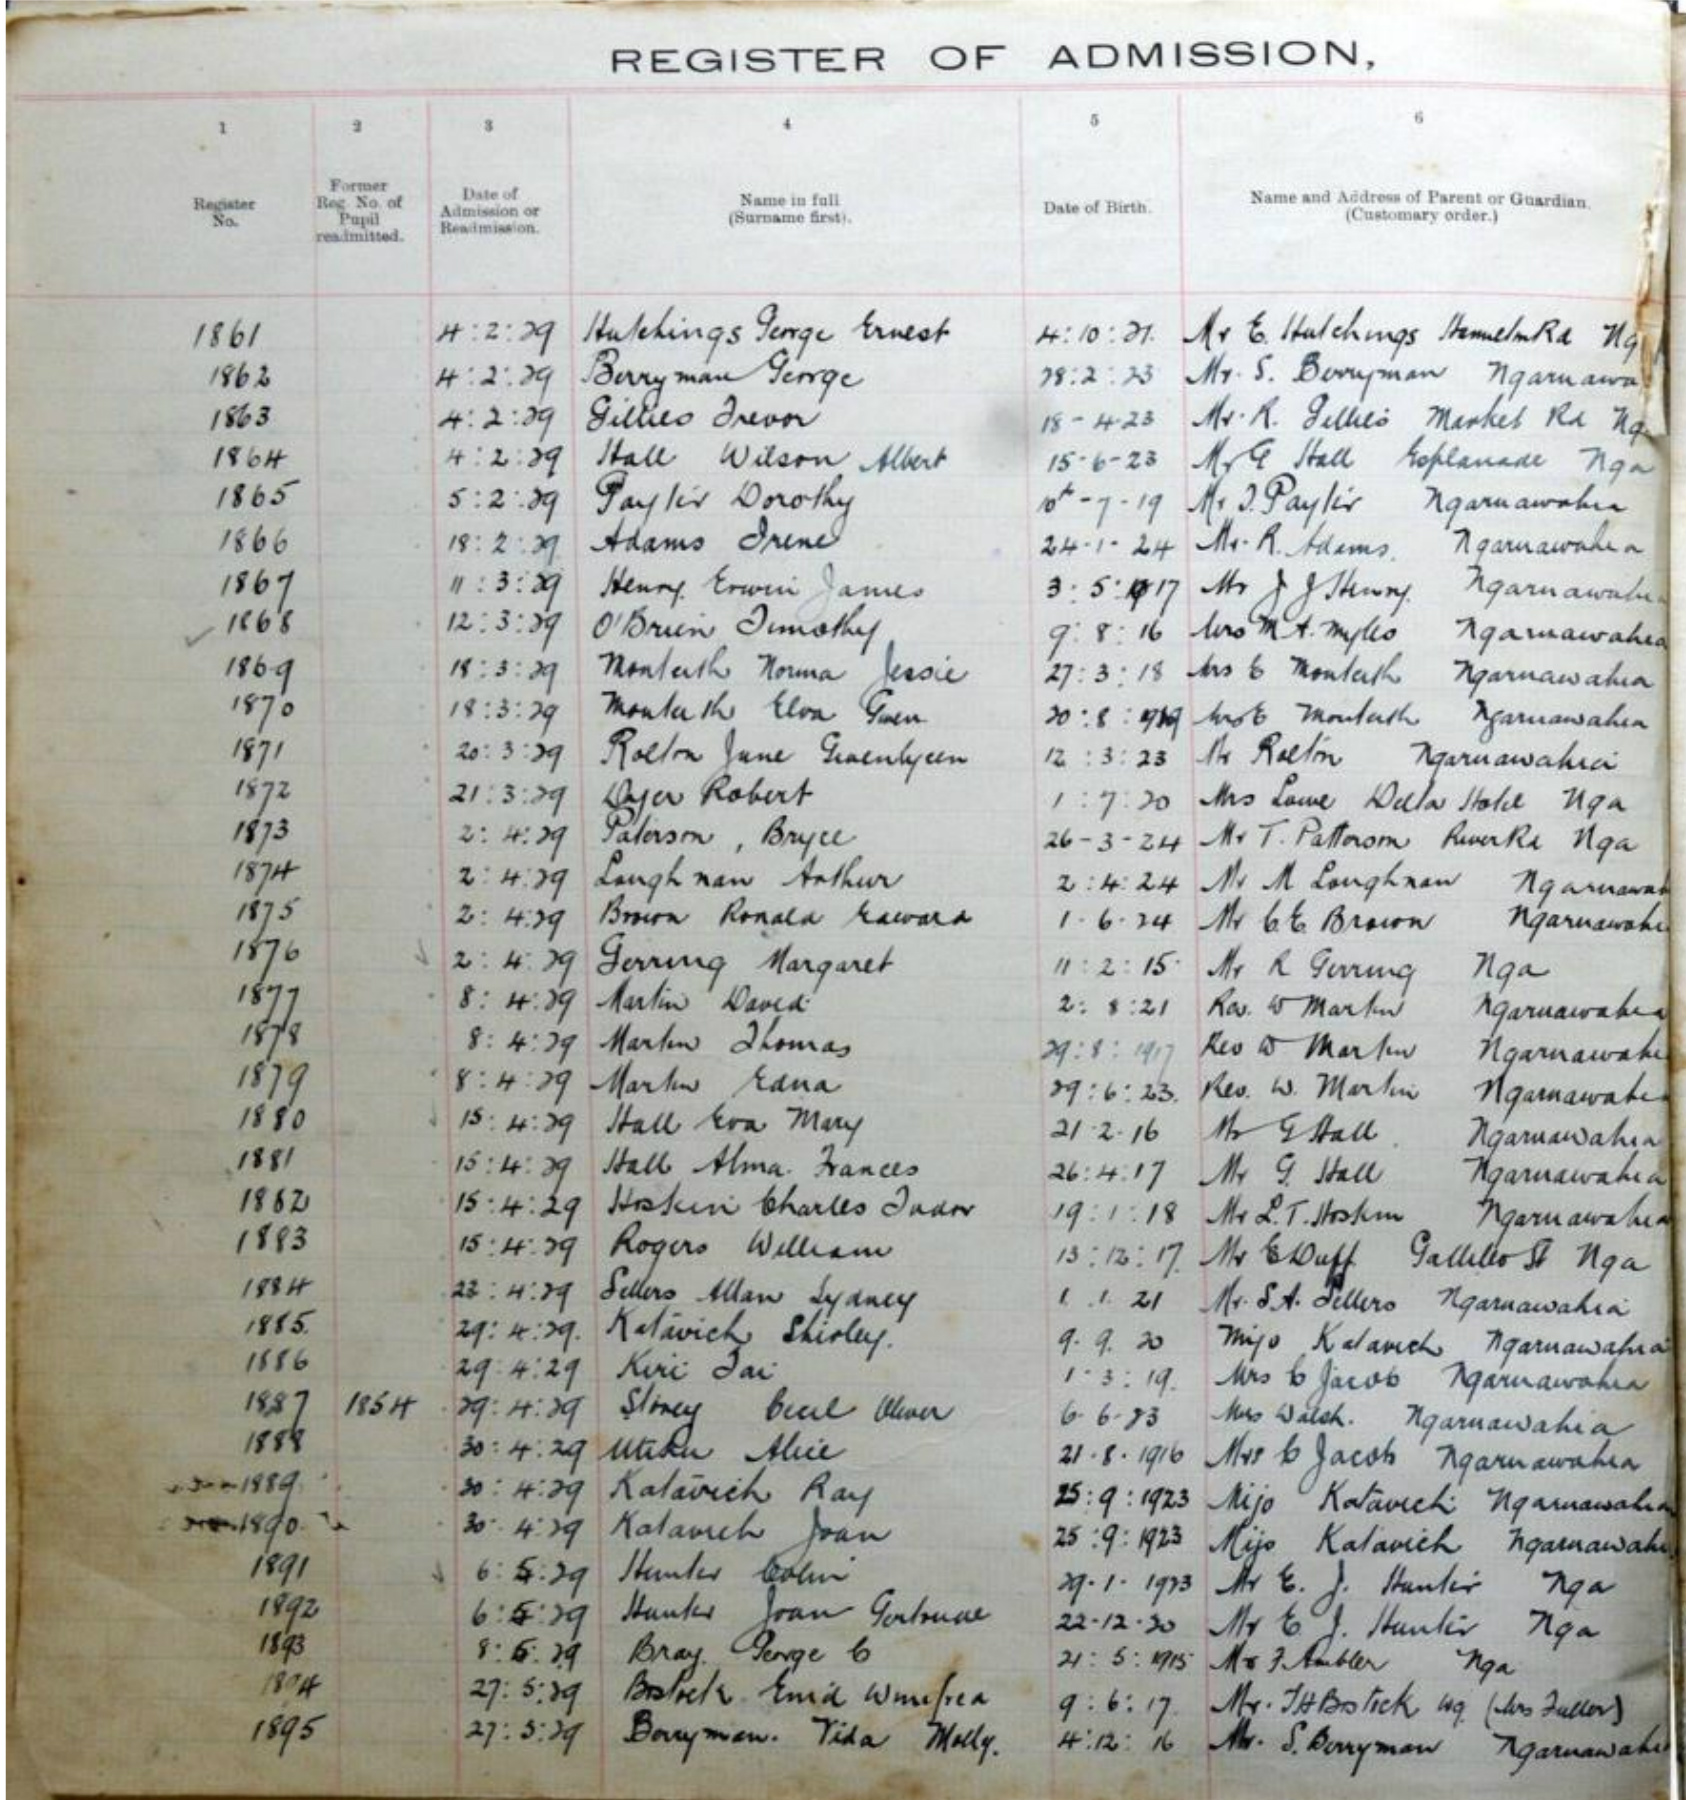 REGISTER OF ADMISSION,
1 2 3 4 5 6
Register No. Former Reg. No. of Pupil readmitted. Date of Admission or Readmission. Name in full (Surname first). Date of Birth. Name and Address of Parent or Guardian. (Customary order.)
1861 4:2:29 Hutchings George Ernest 4:10:21. Mr E. Hutchings Rd Ng
1862 4:2:29 Berryman George 28:2:23 Mr. S. Berryman Ngaruawa
1863 4:2:29 Gillies Trevor 18-4-23 Mr. R. Gillies Market Rd Ng
1864 4:2:29 Hall Wilson Albert 15-6-23 Mr G Hall Esplanade Nga
1865 5:2:29 Paylir Dorothy 10th-7-19 Mr J. Paylir Ngaruawahia
1866 18:2:29 Adams Irene 24-1-24 Mr. R. Adams. Ngaruawahia
1867 11:3:29 Henry Erwin James 3:5:17 Mr J J Henry. Ngaruawahia
1868 12:3:29 O'Brien Timothy 9:8:16 Mrs M A. Myles Ngaruawahia
1869 18:3:29 Monteith Norma Jessie 27:3:18 Mrs E Monteith Ngaruawahia
1870 18:3:29 Monteith Elva Gwen 20:8:1919 Mrs E Monteith Ngaruawahia
1871 20:3:29 Rolton June 12:3:23 Mr Rolton Ngaruawahia
1872 21:3:29 Dyer Robert 1:7:20 Mrs Lowe Delta Hotel Nga
1873 2:4:29 Paterson, Bryce 26-3-24 Mr T. Patterson River Rd Nga
1874 2:4:29 Loughnan Arthur 2:4:24 Mr M Loughnan Ngaruawah
1875 2:4:29 Brown Ronald Edward 1-6-24 Mr C.E. Brown Ngaruawahi
1876 2:4:29 Gerring Margaret 11:2:15 Mr R Gerring Nga
1877 8:4:29 Martin David 2:8:21 Rev. W Martin Ngaruawahia
1878 8:4:29 Martin Thomas 29:8:1917 Rev W Martin Ngaruawahi
1879 8:4:29 Martin Edna 29:6:23. Rev. W. Martin Ngaruawahi
1880 15:4:29 Hall Eva Mary 21-2-16 Mr G Hall. Ngaruawahia
1881 15:4:29 Hall Alma. Frances 26:4:17 Mr G. Hall Ngaruawahia
1882 15:4:29 Hoskin Charles Tudor 19:1:18 Mr L.T. Hoskin Ngaruawahia
1883 15:4:29 Rogers William 13:12:17. Mr E Duff Gallileo St Nga
1884 22:4:29 Sellers Allan Sydney 1.1.21 Mr. S.A. Sellers Ngaruawahia
1885. 29:4:29. Katavich Shirley. 9.9.20 Mijo Katavich Ngaruawahia
1886 29:4:29 Kiri Tai 1-3:19. Mrs C Jacob Ngaruawahia
1887 1854 29:4:29 Storey Cecil Oliver 6-6-23 Mrs Walsh. Ngaruawahia
1888 30:4:29 Utiku Alice 21.8.1916 Mrs C Jacob Ngaruawahia
1889 30:4:29 Katavich Ray 25:9:1923 Mijo Katavich Ngaruawahia
1890 30:4:29 Katavich Joan 25:9:1923 Mijo Katavich Ngaruawahi
1891 6:5:29 Hunter Colin 29-1-1923 Mr E. J. Hunter Nga
1892 6:5:29 Hunter Joan Gertrude 22-12-20 Mr E J. Hunter Nga
1893 8:5:29 Bray. George C 21:5:1915 Mr F. Ambler Nga
1894 27:5:29 Bostock Enid Winifred 9:6:17. Mr. T H Bostock Ng. (Mrs Fuller)
1895 27:5:29 Berryman. Vida Molly. 4:12:16 Mr. S. Berryman Ngaruawahi